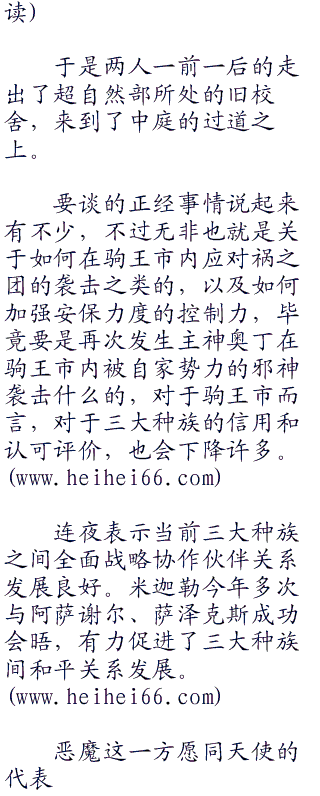 读)
于是两人一前一后的走
出了超自然部所处的旧校
舍，来到了中庭的过道之
上。
要谈的正经事情说起来
有不少，不过无非也就是关
于如何在驹王市内应对祸之
团的袭击之类的，以及如何
加强安保力度的控制力，毕
竟要是再次发生主神奥丁在
驹王市内被自家势力的邪神
袭击什么的，对于驹王市而
言，对于三大种族的信用和
认可评价，也会下降许多。
(www.heihei66.com)
连夜表示当前三大种族
之间全面战略协作伙伴关系
发展良好。米迦勒今年多次
与阿萨谢尔、萨泽克斯成功
会晤，有力促进了三大种族
间和平关系发展。
(www.heihei66.com)
恶魔这一方愿同天使的
代表